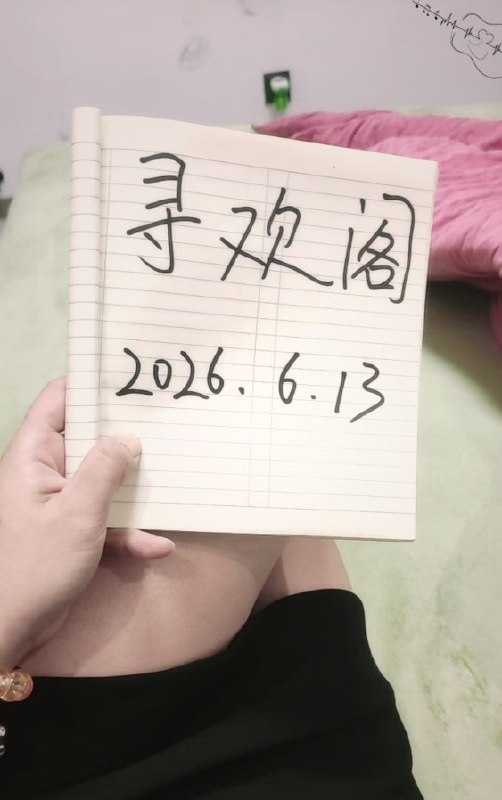 寻欢阁
2026.6.13